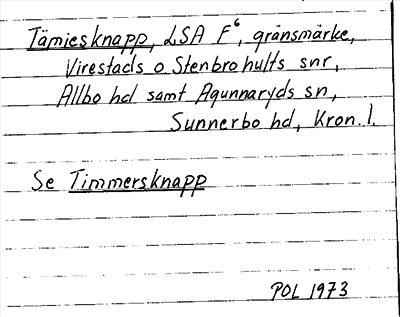 Tämiesknapp, LSA F⁶, gränsmärke,
Virestads o Stenbrohults snr,
Allbo hd samt Agunnaryds sn,
Sunnerbo hd, Kron. l.
Se Timmersknapp
POL 1973